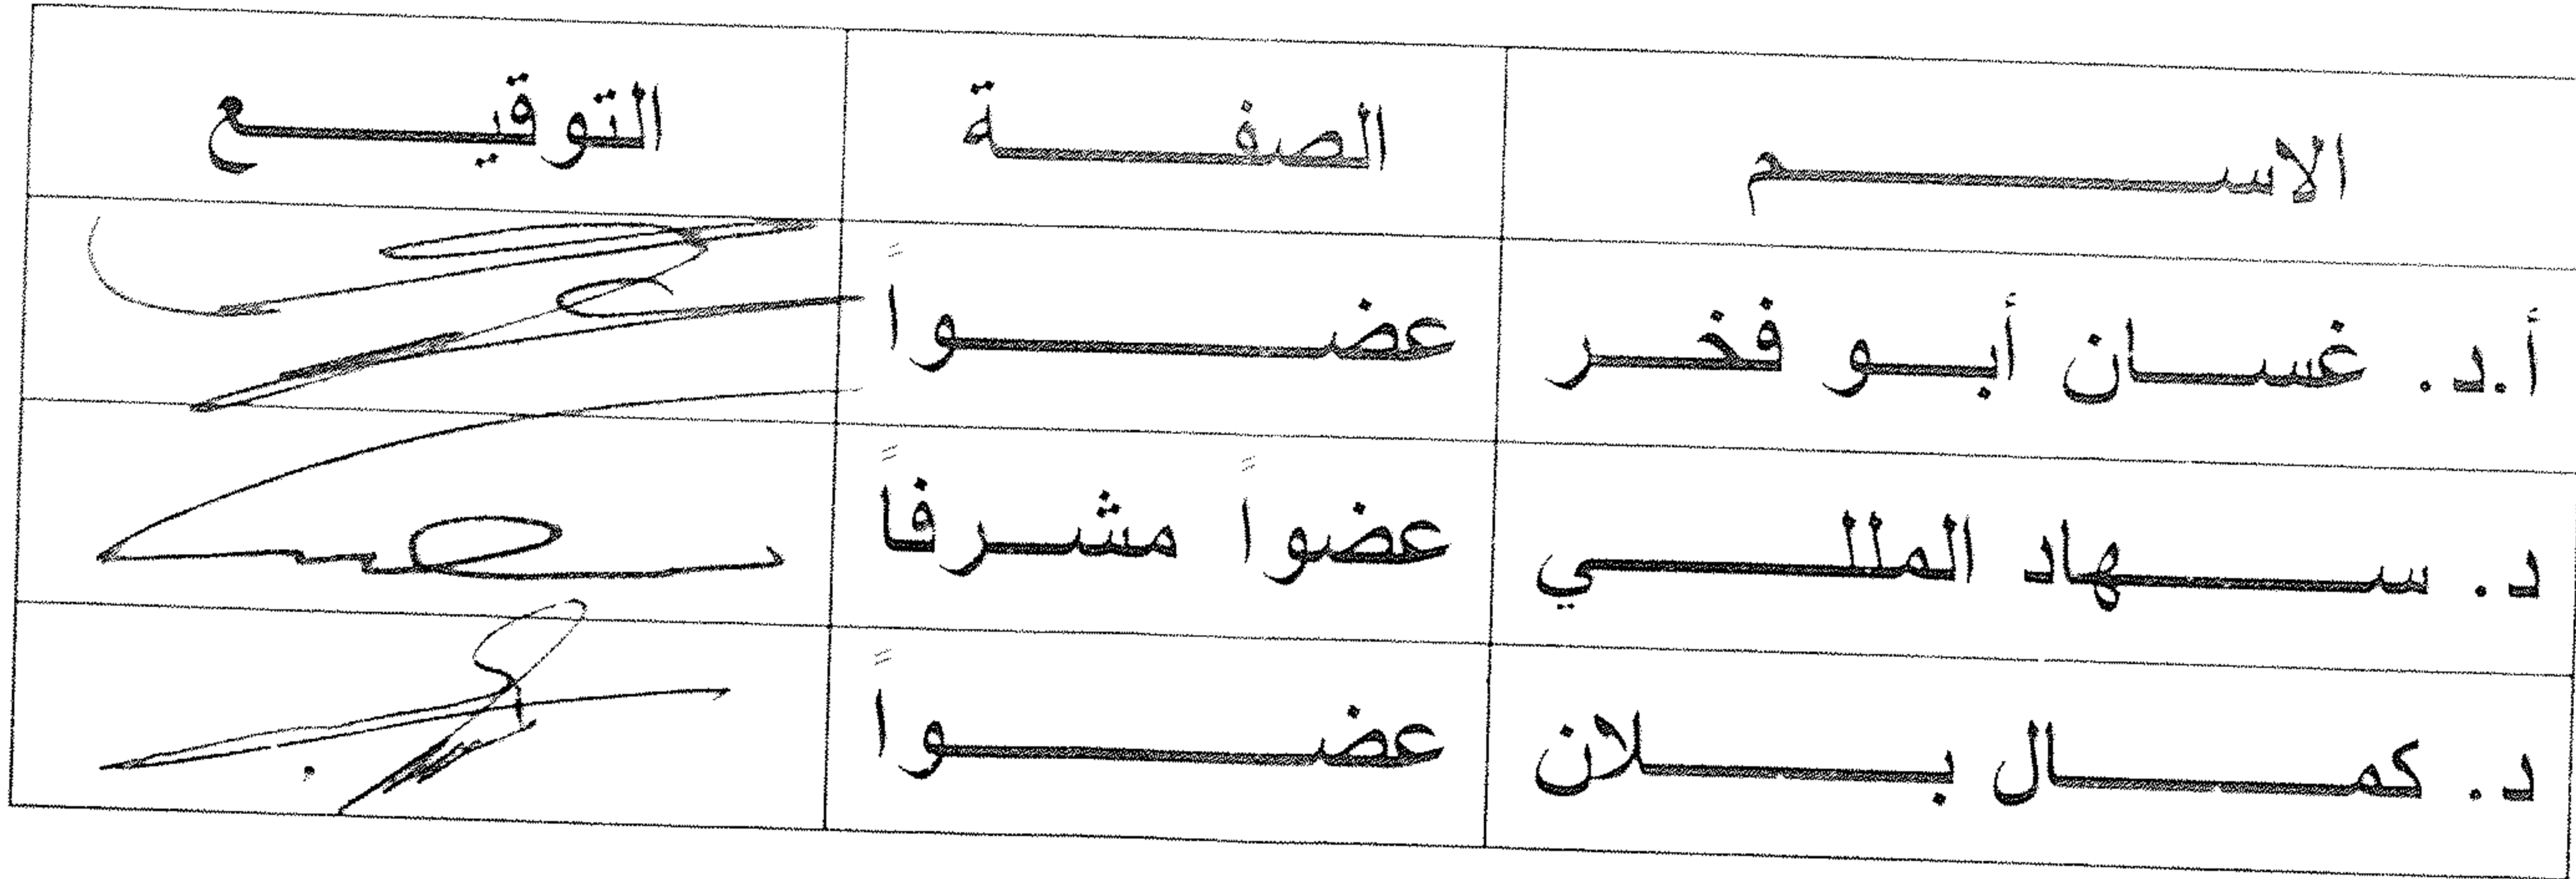 الاسم الصفة التوقيع
أ.د. غسان أبو فخر عضواً
د. سهاد المللي عضواً مشرفاً
د. كمال بلان عضواً